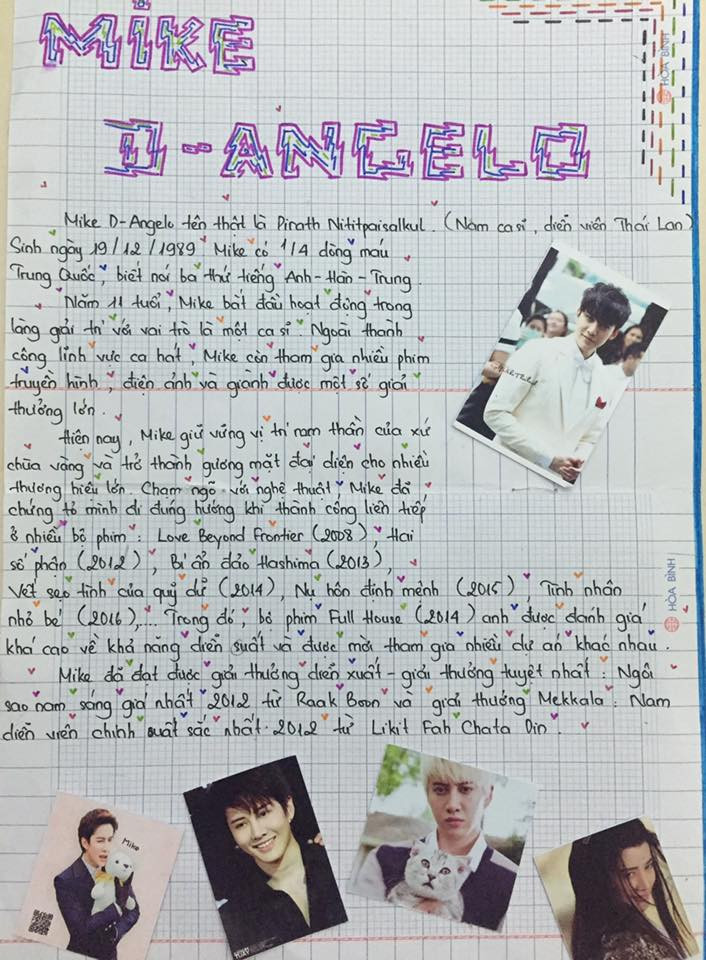 MIKE
D-ANGELO
HÒA BÌNH
Mike D-Angelo tên thật là Pirath Nititpaisalkul. (Nam ca sĩ, diễn viên Thái Lan)
Sinh ngày 19/12/1989 Mike có 1/4 dòng máu
Trung Quốc, biết nói ba thứ tiếng Anh-Hàn-Trung.
Năm 11 tuổi, Mike bắt đầu hoạt động trong
làng giải trí với vai trò là một ca sĩ. Ngoài thành
công lĩnh vực ca hát, Mike còn tham gia nhiều phim
truyền hình, điện ảnh và giành được một số giải
thưởng lớn.
Hiện nay, Mike giữ vững vị trí nam thần của xứ
chùa vàng và trở thành gương mặt đại diện cho nhiều
thương hiệu lớn. Chạm ngõ với nghệ thuật, Mike đã
chứng tỏ mình đi đúng hướng khi thành công liên tiếp
ở nhiều bộ phim: Love Beyond Frontier (2008), Hai
số phận (2012), Bí ẩn đảo Hashima (2013),
Vết sẹo tình của quỷ dữ (2014), Nụ hôn định mệnh (2015), Tình nhân
nhỏ bé (2016),... Trong đó, bộ phim Full House (2014) anh được đánh giá
HÒA BÌNH
khá cao về khả năng diễn suất và được mời tham gia nhiều dự án khác nhau.
Mike đã đạt được giải thưởng diễn xuất - giải thưởng tuyệt nhất: Ngôi
sao nam sáng giá nhất 2012 từ Raak Boon và giải thưởng Mekkala: Nam
diễn viên chính xuất sắc nhất 2012 từ Likit Fah Chata Din.
Mike